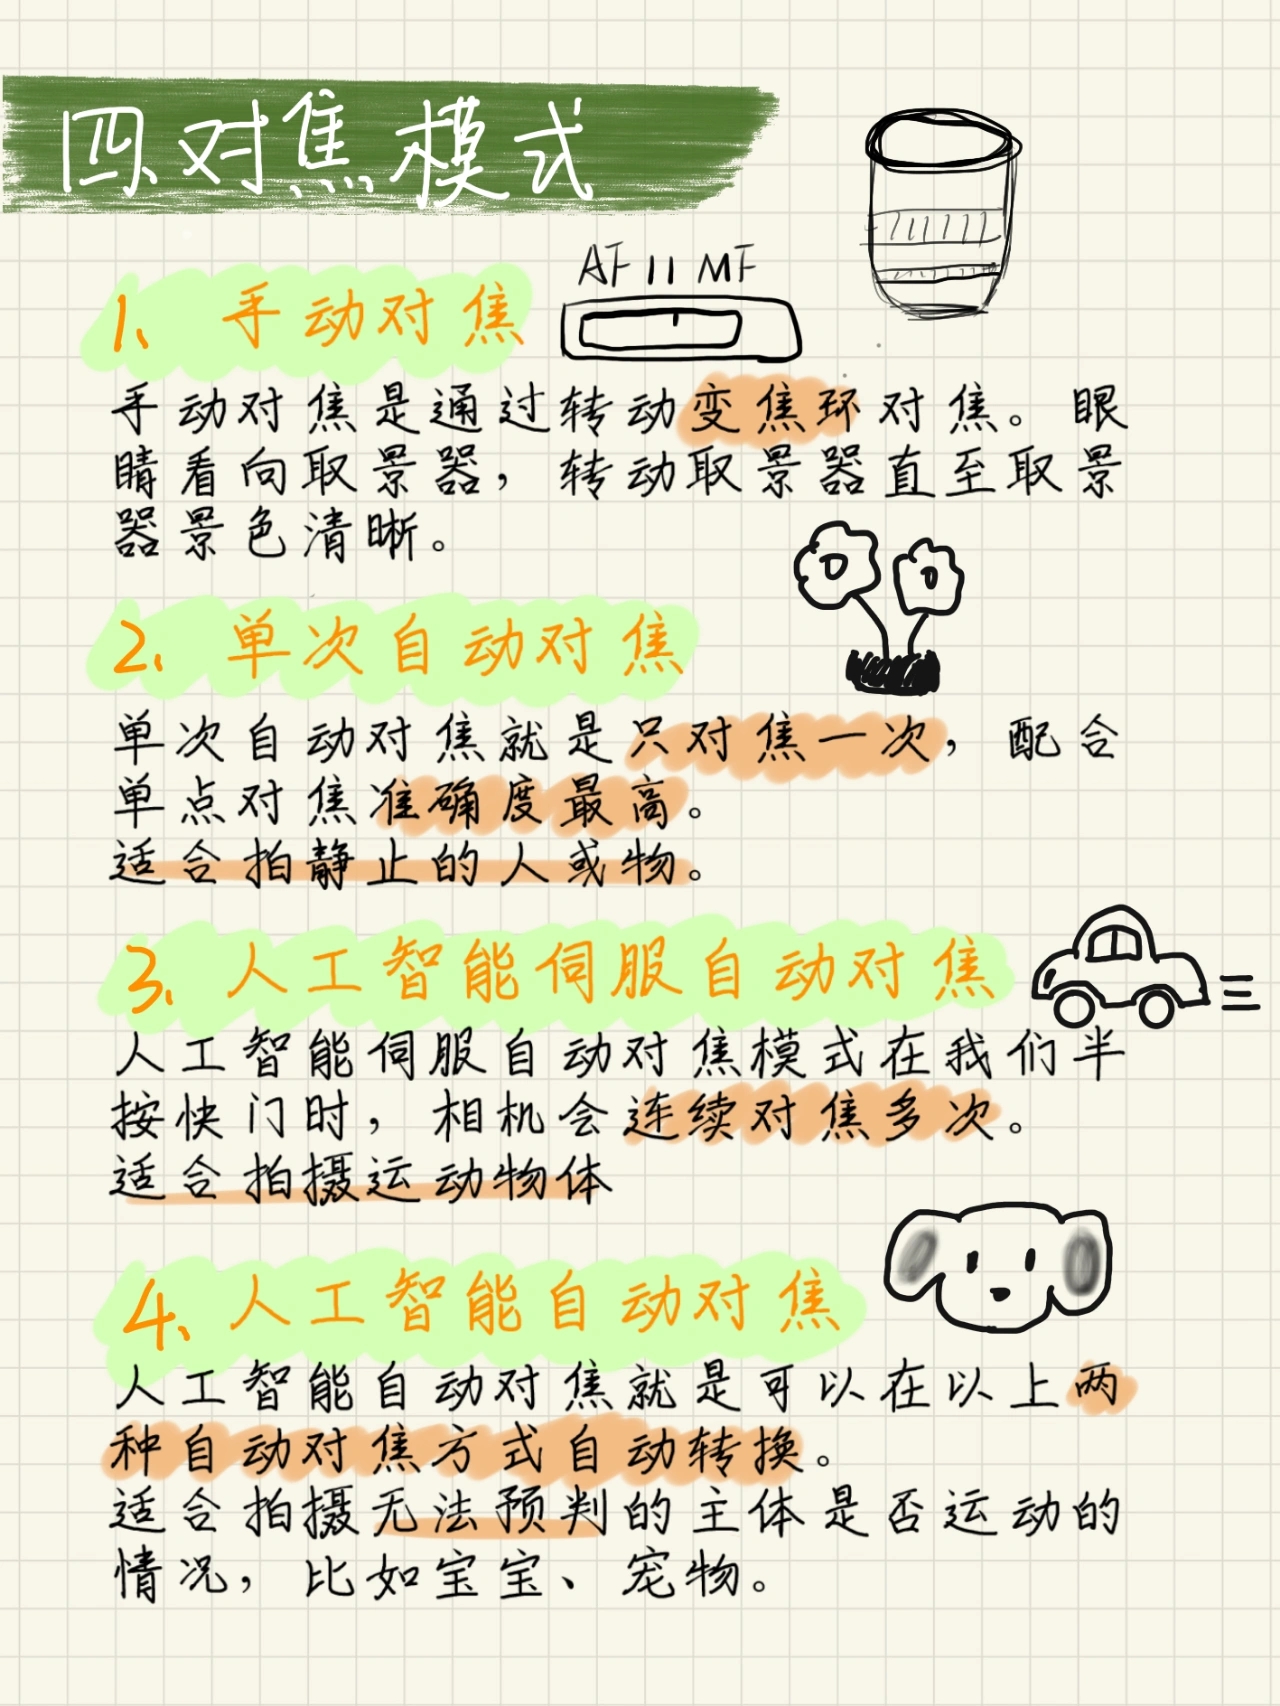 四、对焦模式
AF II MF
1、手动对焦
手动对焦是通过转动变焦环对焦。眼
睛看向取景器，转动取景器直至取景
器景色清晰。
2、单次自动对焦
单次自动对焦就是只对焦一次，配合
单点对焦准确度最高。
适合拍静止的人或物。
3、人工智能伺服自动对焦
人工智能伺服自动对焦模式在我们半
按快门时，相机会连续对焦多次。
适合拍摄运动物体
4、人工智能自动对焦
人工智能自动对焦就是可以在以上两
种自动对焦方式自动转换。
适合拍摄无法预判的主体是否运动的
情况，比如宝宝、宠物。